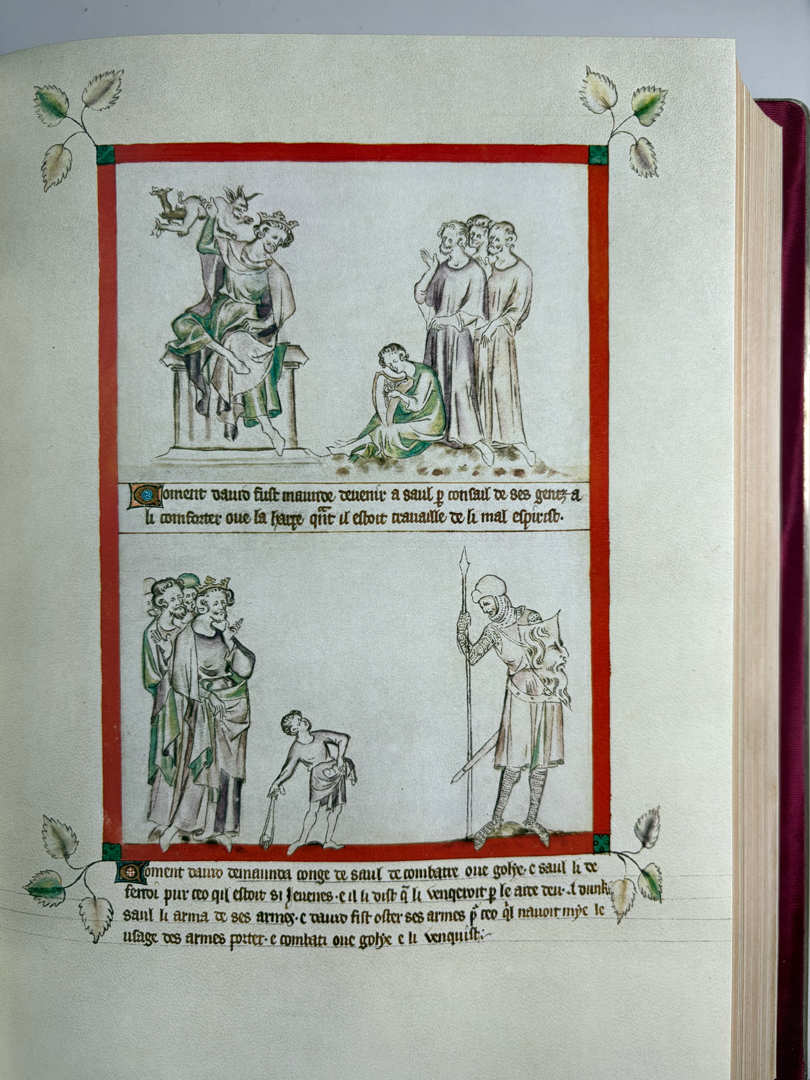 Coment dauid fust maunde deuenir a saul p consail de ses gentz a
li comforter oue la harpe qnt il estoit trauaille de li mal espirist.
Coment dauid demaunda conge de saul de combattre oue golye e saul li de
ferroit pur ceo qil estoit si Jeuenes e il li dist q li vengeroit p le aide deu. A dunk
saul li arma de ses armes e dauid fist oster ses armes p ceo ql nauoit mye le
usage des armes porter e combati oue golye e li venquist